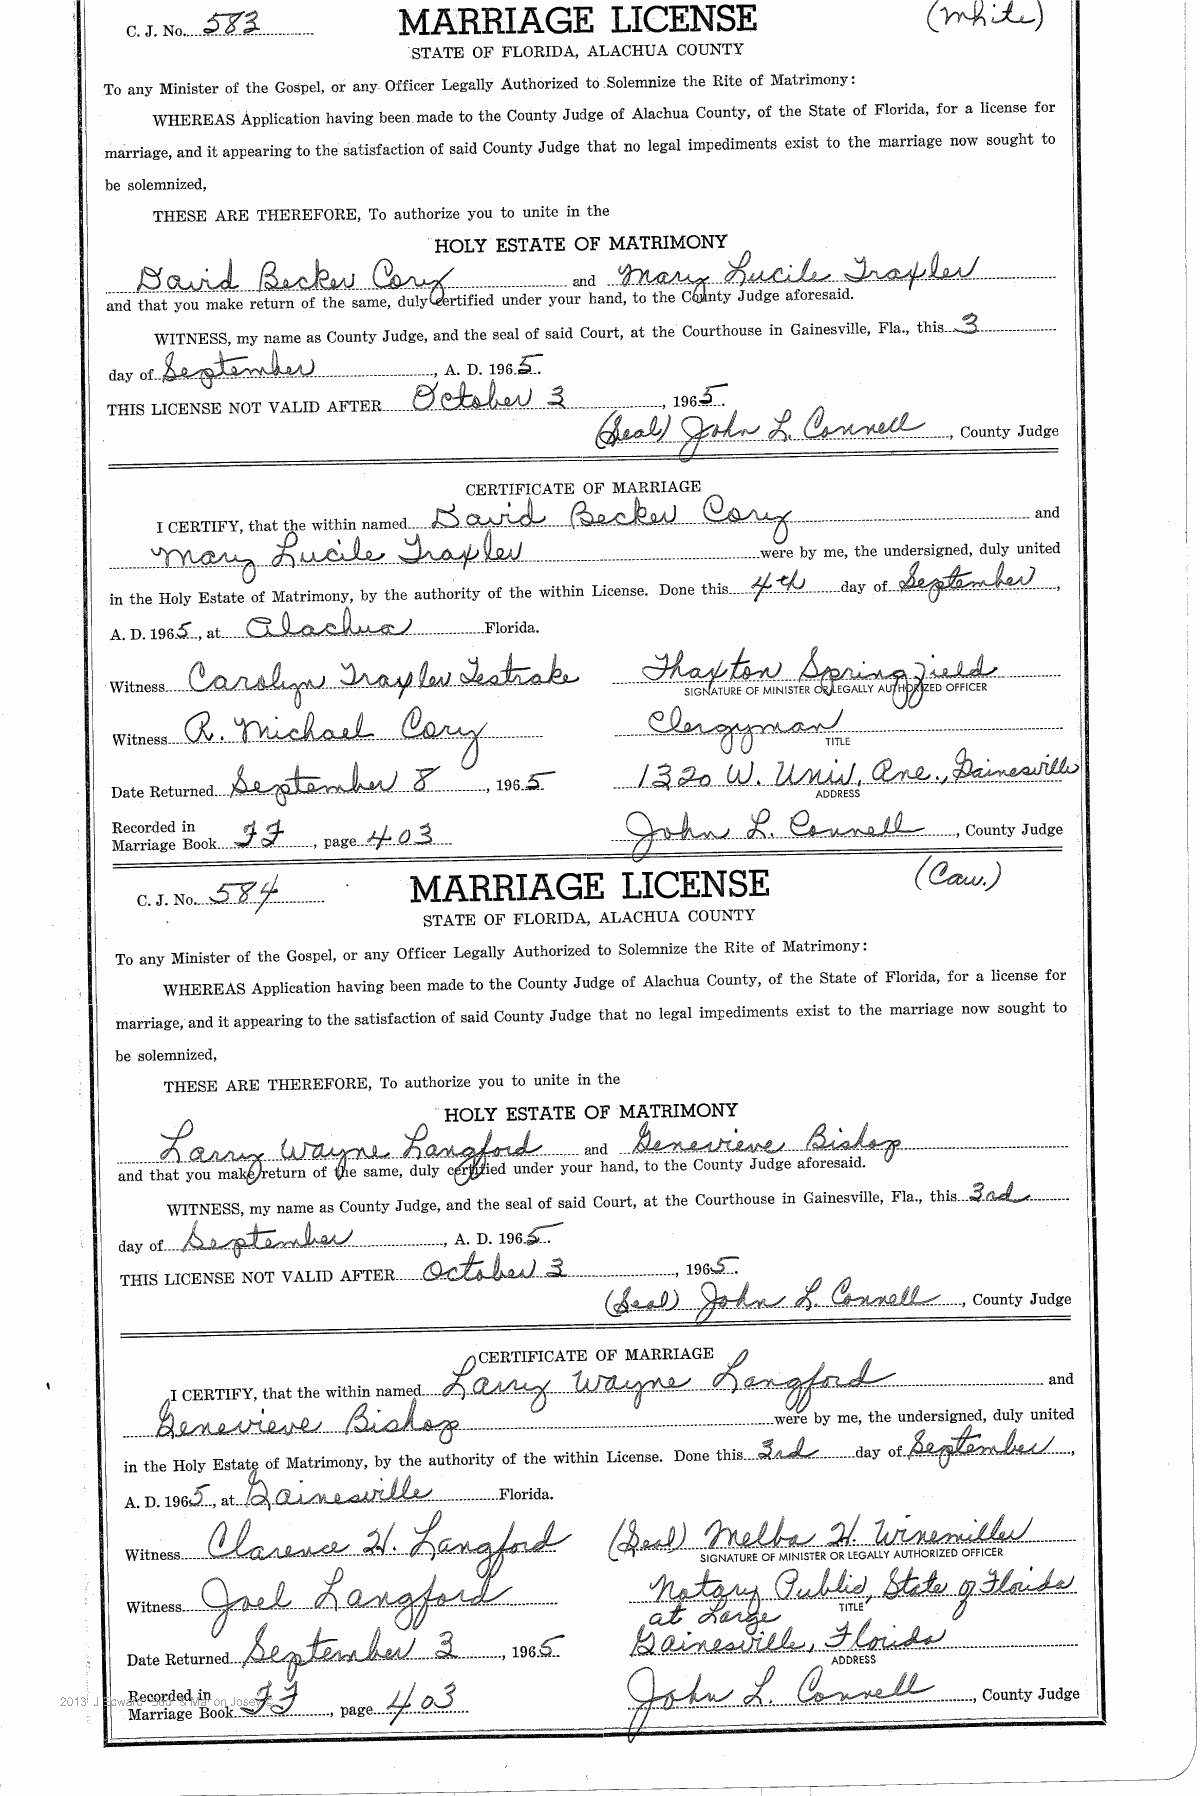 C. J. No. 583 MARRIAGE LICENSE (White)
STATE OF FLORIDA, ALACHUA COUNTY
To any Minister of the Gospel, or any Officer Legally Authorized to Solemnize the Rite of Matrimony:
WHEREAS Application having been made to the County Judge of Alachua County, of the State of Florida, for a license for
marriage, and it appearing to the satisfaction of said County Judge that no legal impediments exist to the marriage now sought to
be solemnized,
THESE ARE THEREFORE, To authorize you to unite in the
HOLY ESTATE OF MATRIMONY
David Becker Cory and Mary Lucile Traxler
and that you make return of the same, duly certified under your hand, to the County Judge aforesaid.
WITNESS, my name as County Judge, and the seal of said Court, at the Courthouse in Gainesville, Fla., this 3
day of September, A. D. 1965.
THIS LICENSE NOT VALID AFTER October 3, 1965.
(Seal) John L. Connell, County Judge
CERTIFICATE OF MARRIAGE
I CERTIFY, that the within named David Becker Cory and
Mary Lucile Traxler were by me, the undersigned, duly united
in the Holy Estate of Matrimony, by the authority of the within License. Done this 4th day of September,
A. D. 1965, at Alachua Florida.
Witness Carolyn Traxler Testrake Thaxton Springfield
SIGNATURE OF MINISTER OR LEGALLY AUTHORIZED OFFICER
Witness R. Michael Cory Clergyman
TITLE
Date Returned September 8, 1965 1320 W. Univ. Ave., Gainesville
ADDRESS
Recorded in
Marriage Book FF, page 403 John L. Connell, County Judge
C. J. No. 584 MARRIAGE LICENSE (Cau.)
STATE OF FLORIDA, ALACHUA COUNTY
To any Minister of the Gospel, or any Officer Legally Authorized to Solemnize the Rite of Matrimony:
WHEREAS Application having been made to the County Judge of Alachua County, of the State of Florida, for a license for
marriage, and it appearing to the satisfaction of said County Judge that no legal impediments exist to the marriage now sought to
be solemnized,
THESE ARE THEREFORE, To authorize you to unite in the
HOLY ESTATE OF MATRIMONY
Larry Wayne Langford and Genevieve Bishop
and that you make return of the same, duly certified under your hand, to the County Judge aforesaid.
WITNESS, my name as County Judge, and the seal of said Court, at the Courthouse in Gainesville, Fla., this 3rd
day of September, A. D. 1965.
THIS LICENSE NOT VALID AFTER October 3, 1965.
(Seal) John L. Connell, County Judge
CERTIFICATE OF MARRIAGE
I CERTIFY, that the within named Larry Wayne Langford and
Genevieve Bishop were by me, the undersigned, duly united
in the Holy Estate of Matrimony, by the authority of the within License. Done this 3rd day of September,
A. D. 1965, at Gainesville Florida.
Witness Clarence H. Langford (Seal) Melba H. Winemiller
SIGNATURE OF MINISTER OR LEGALLY AUTHORIZED OFFICER
Witness Joel Langford Notary Public, State of Florida
at Large TITLE
Date Returned September 3, 1965 Gainesville, Florida
ADDRESS
Recorded in
Marriage Book FF, page 403 John L. Connell, County Judge
2013 J Edward